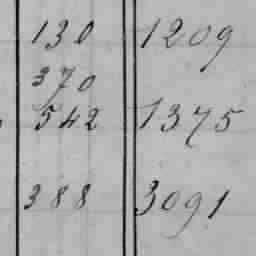 130 1209
370
542 1375
388 3091